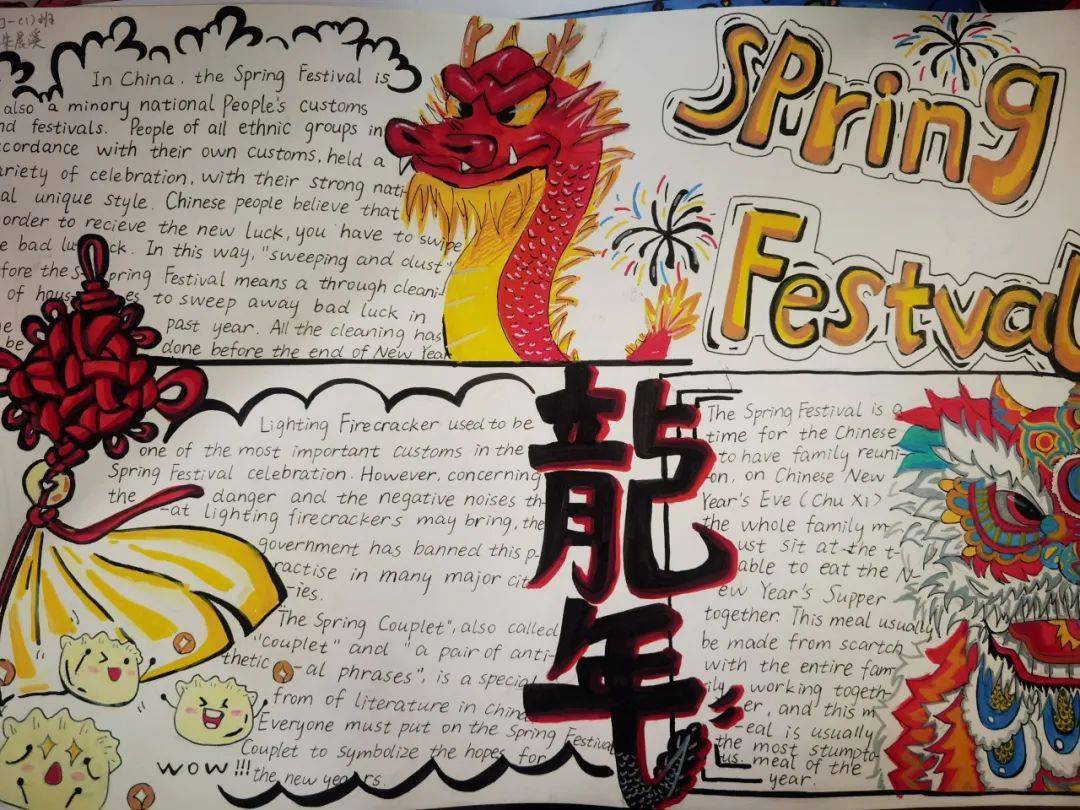 一(1)班
Spring
Festval
In China, the Spring Festival is
also a minory national People's customs
festivals. People of all ethnic groups in
ccordance with their own customs, held a
ariety of celebration, with their strong nati
al unique style. Chinese people believe that
order to recieve the new luck, you have to swipe
e bad lu ck. In this way, "sweeping and dust"
fore the S pring Festival means a through cleani-
of hous es to sweep away bad luck in
past year. All the cleaning has
be done before the end of New Year
Lighting Firecracker used to be
one of the most important customs in the
Spring Festival celebration. However, concerning
the danger and the negative noises th-
-at lighting firecrackers may bring, the
government has banned this p-
ractise in many major cit
-ies.
"The Spring Couplet", also called
"couplet" and "a pair of anti-
thetic -al phrases", is a special
from of literature in China
Everyone must put on the Spring Festival
Couplet to symbolize the hopes for
the new years.
WOW!!!
龍年
The Spring Festival is a
time for the Chinese
to have family reuni-
-on, on Chinese New
Year's Eve (Chu Xi)
the whole family m
ust sit at the t-
able to eat the N-
ew Year's Supper
together. This meal usually
be made from scartch
with the entire fam
ily working togeth-
er, and this m
-eal is usually
the most stumpto-
us meal of the
year.